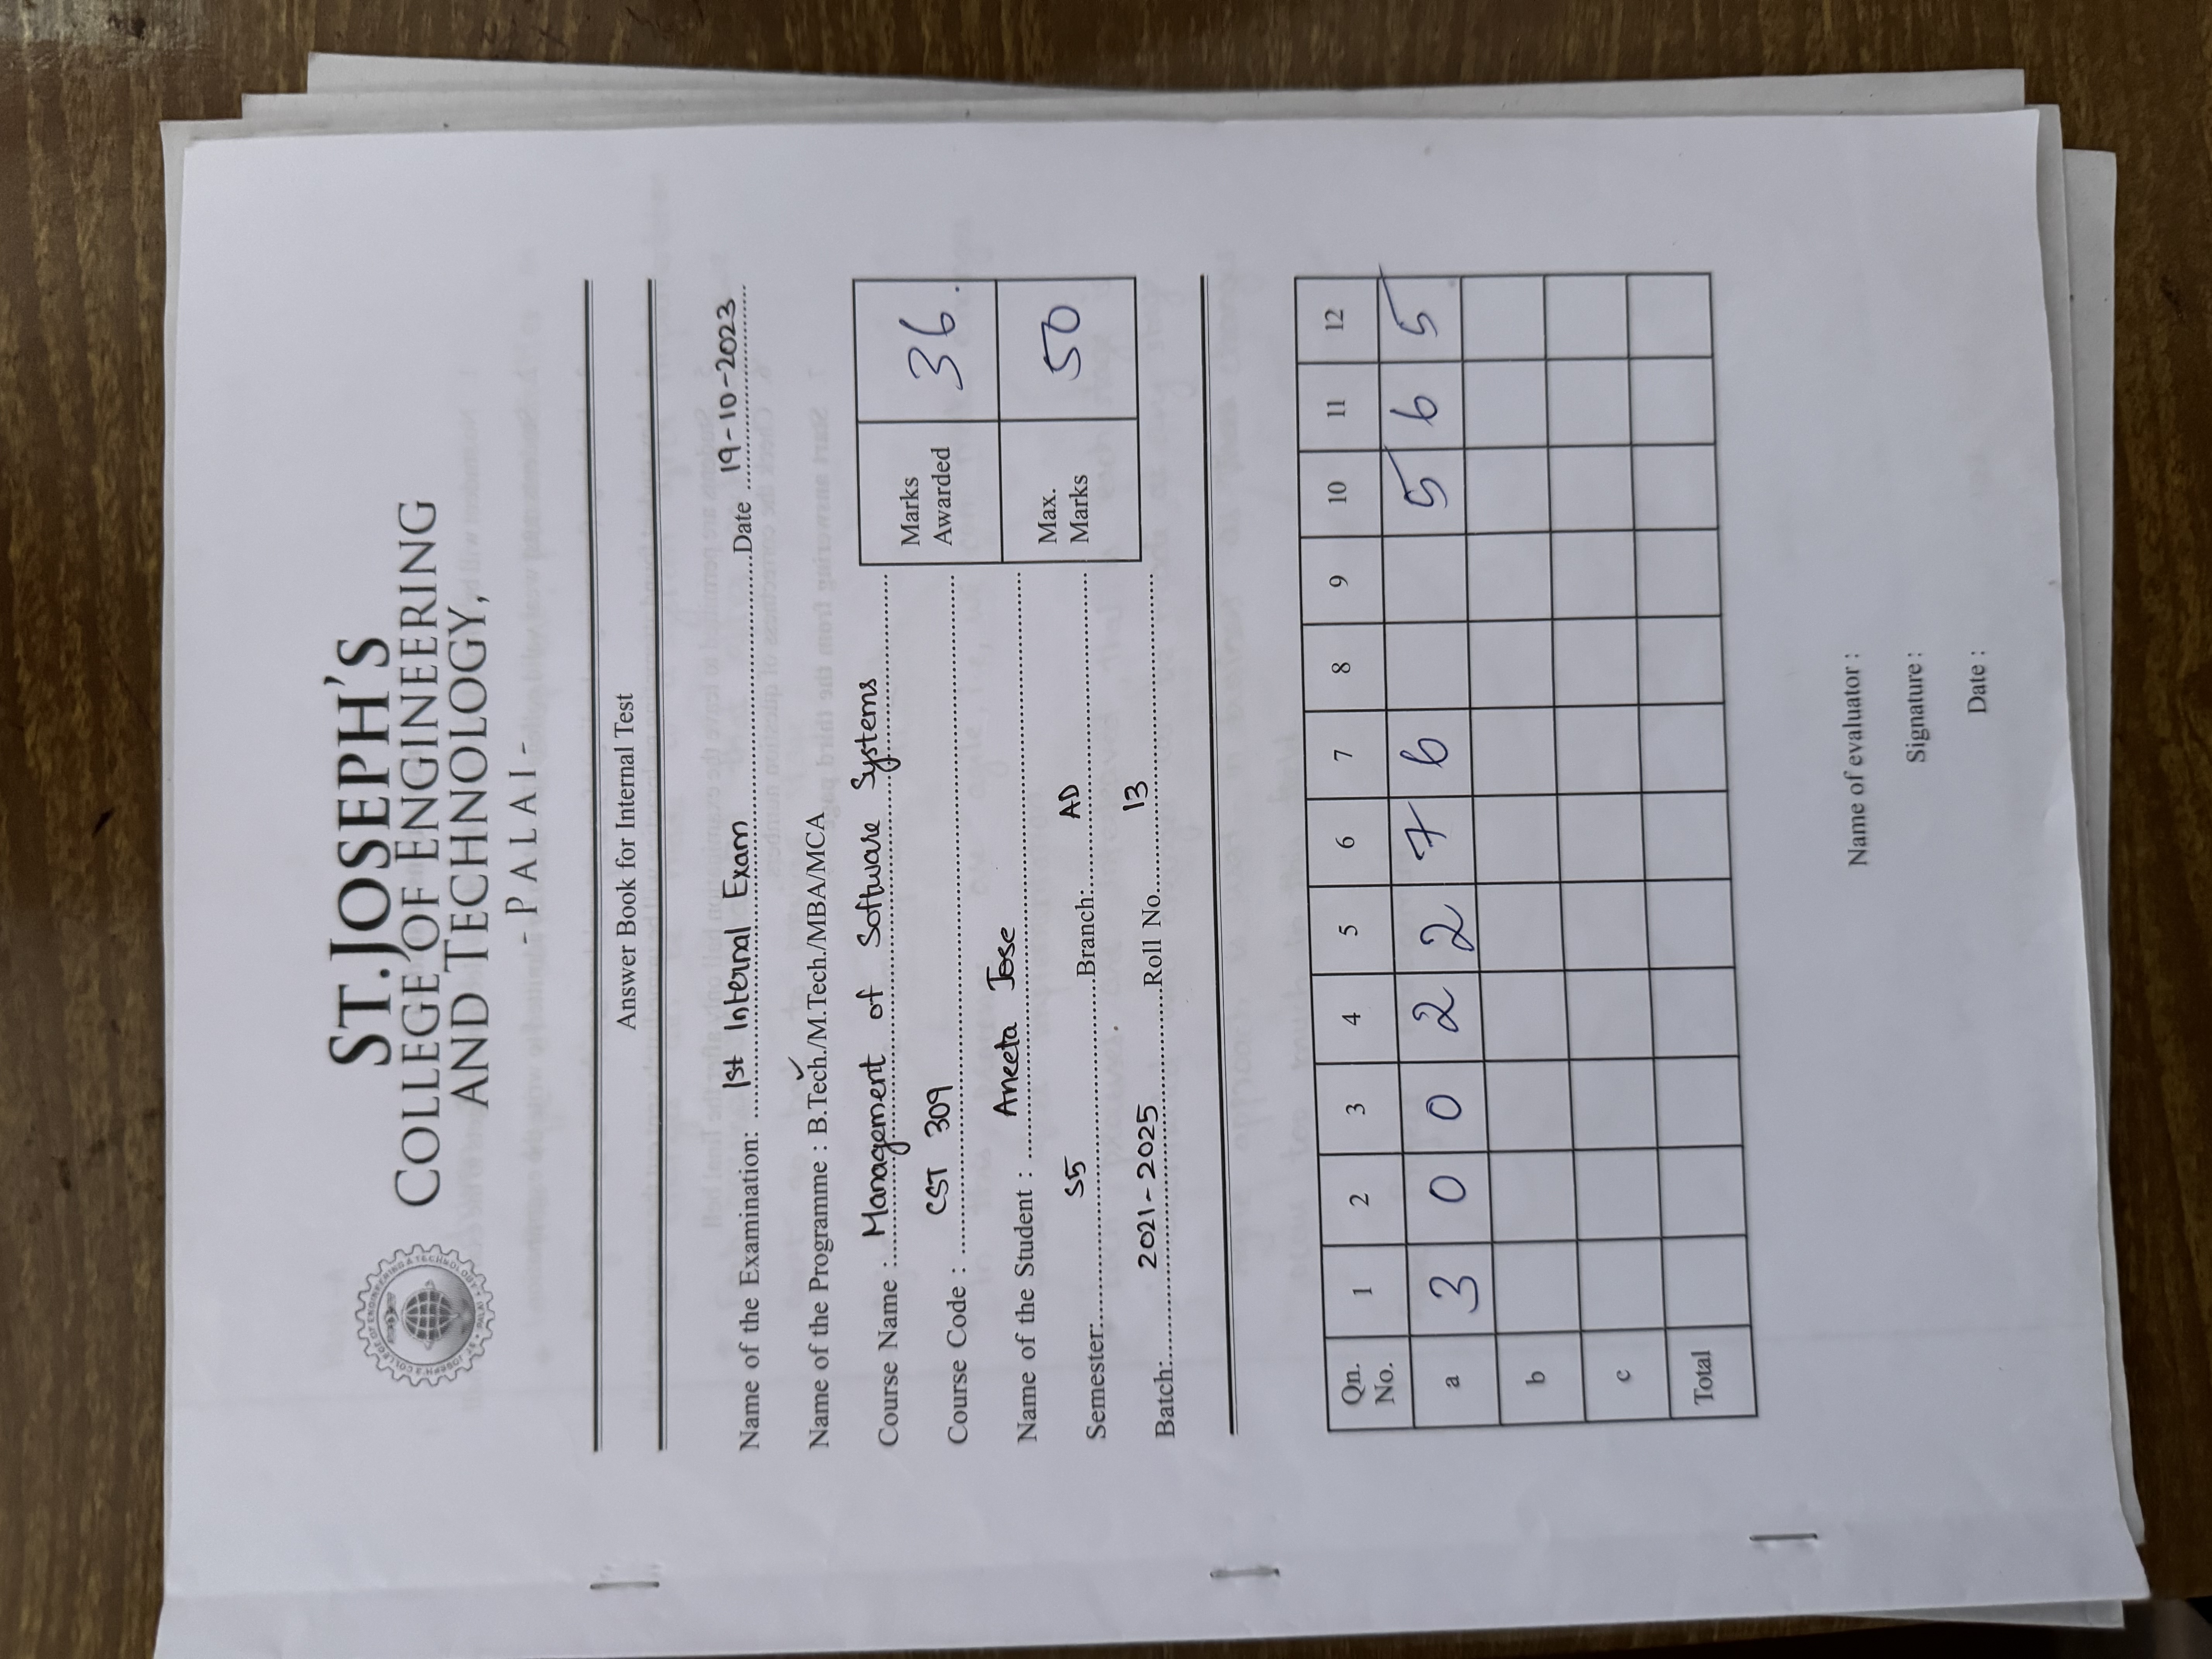 ST.JOSEPH'S
COLLEGE OF ENGINEERING
AND TECHNOLOGY,
- PALAI -
Answer Book for Internal Test
Name of the Examination: 1st Internal Exam Date 19-10-2023
Name of the Programme : B.Tech./M.Tech./MBA/MCA
Course Name : Management of Software Systems
Course Code : CST 309
Name of the Student : Aneeta Jose
Semester: S5 Branch: AD
Batch: 2021-2025 Roll No. 13
Marks Awarded 36.
Max. Marks 50
Qn. No. 1 2 3 4 5 6 7 8 9 10 11 12
a 3 0 0 2 2 7 6 5 6 5
b
c
Total
Name of evaluator :
Signature :
Date :